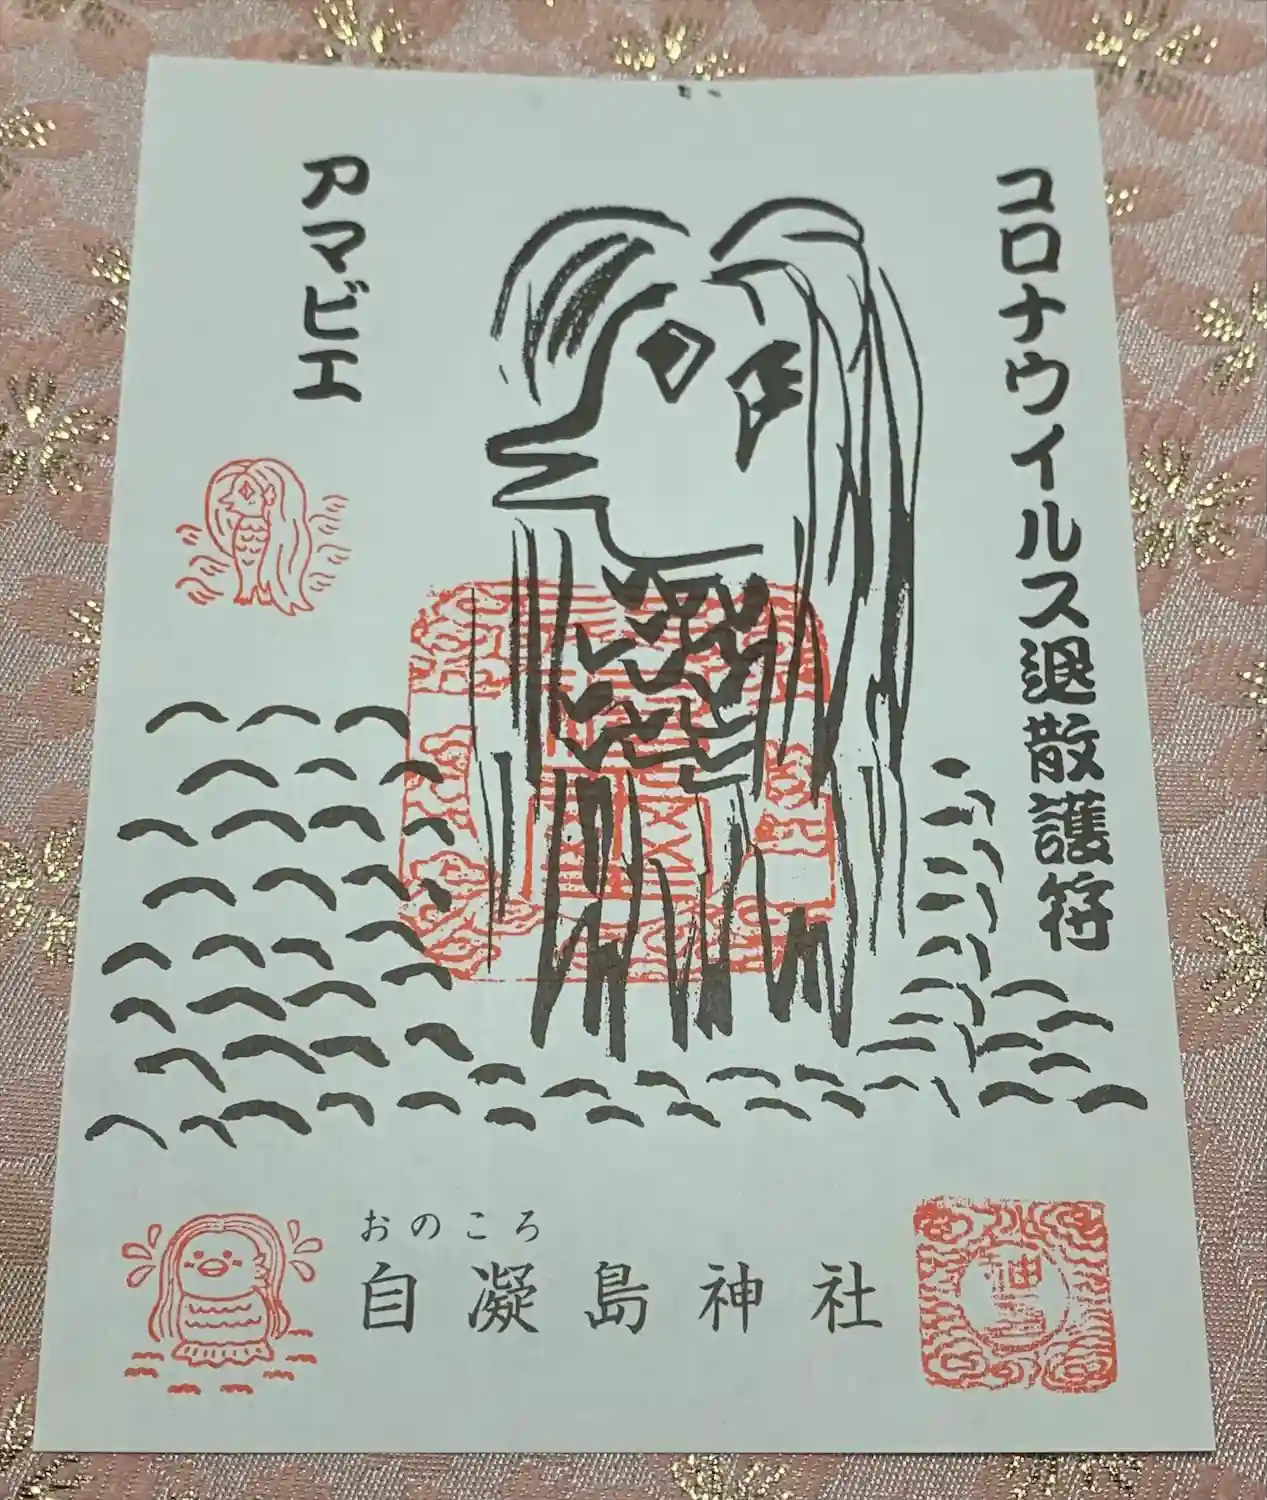 コロナウイルス退散護符
アマビエ
おのころ
自凝島神社